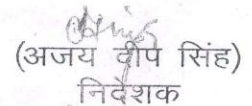 (अजय दीप सिंह)
निदेशक